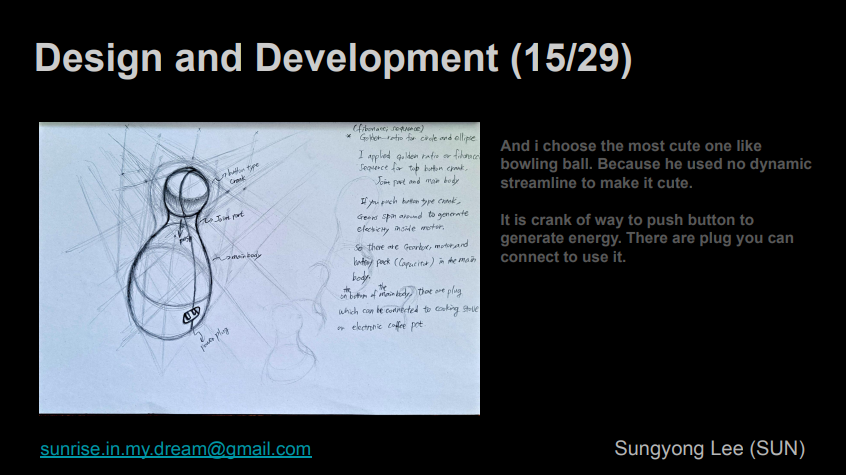 Design and Development (15/29)
(fibonacci sequence)
* Golden ratio for circle and ellipse
I applied golden ratio or fibonacci
sequence for top button crank.
Joint part and main body
If you push button type crank,
Gears spin around to generate
electricity inside motor.
So there are Gearbox, motor, and
battery pack (Capacitor) in the main
body.
on bottom of the main body, That are plug
which can be connected to cooking stove
or electronic coffee pot
button type
crank
Joint part
push
main body
power plug
And i choose the most cute one like
bowling ball. Because he used no dynamic
streamline to make it cute.
It is crank of way to push button to
generate energy. There are plug you can
connect to use it.
sunrise.in.my.dream@gmail.com
Sungyong Lee (SUN)